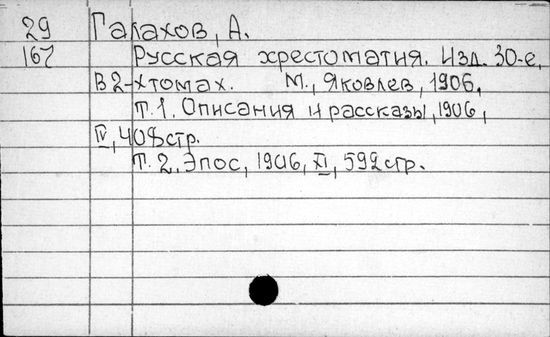 29 Галахов, А.
167 Русская хрестоматия. Изд. 30-е,
в 2-х томах. М., Яковлев, 1906,
Т. 1. Описания и рассказы, 1906,
IV, 408 стр.
Т. 2. Эпос, 1906, XI, 592 стр.